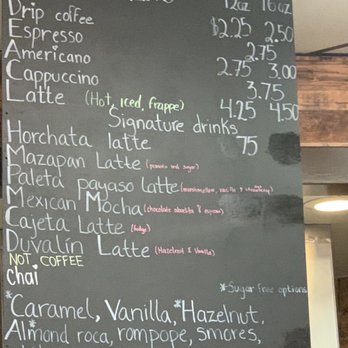 12oz 16oz
Drip coffee $2.25 2.50
Espresso 2.75
Americano 2.75 3.00
Cappuccino 3.75
Latte (Hot, iced, frappe) 4.25 4.50
Signature drinks
Horchata latte 75
Mazapan Latte (peanuts and sugar)
Paleta payaso latte (marshmellow,
Mexican Mocha (chocolate abuelita & espresso)
Cajeta Latte
Duvalín Latte (Hazelnut & Vanilla)
NOT COFFEE
Chai
*Sugar free options
*Caramel, Vanilla,*Hazelnut,
Almond roca, rompope, smores,